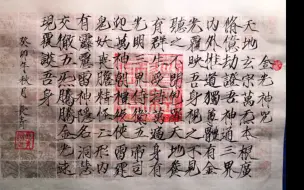 金光神咒
天地玄宗萬炁本根廣
修億劫證吾神通三界
內外惟道獨尊體有金
光覆映吾身視之不見
聽之不聞包羅天地養
育群生受持萬遍身有
光明三界侍衛五帝司
迎萬神朝禮役使雷霆
鬼妖喪膽精怪亡形內
有霹靂雷神隱名洞慧
交徹五炁騰騰金光速
現覆護吾身
癸卯年秋月